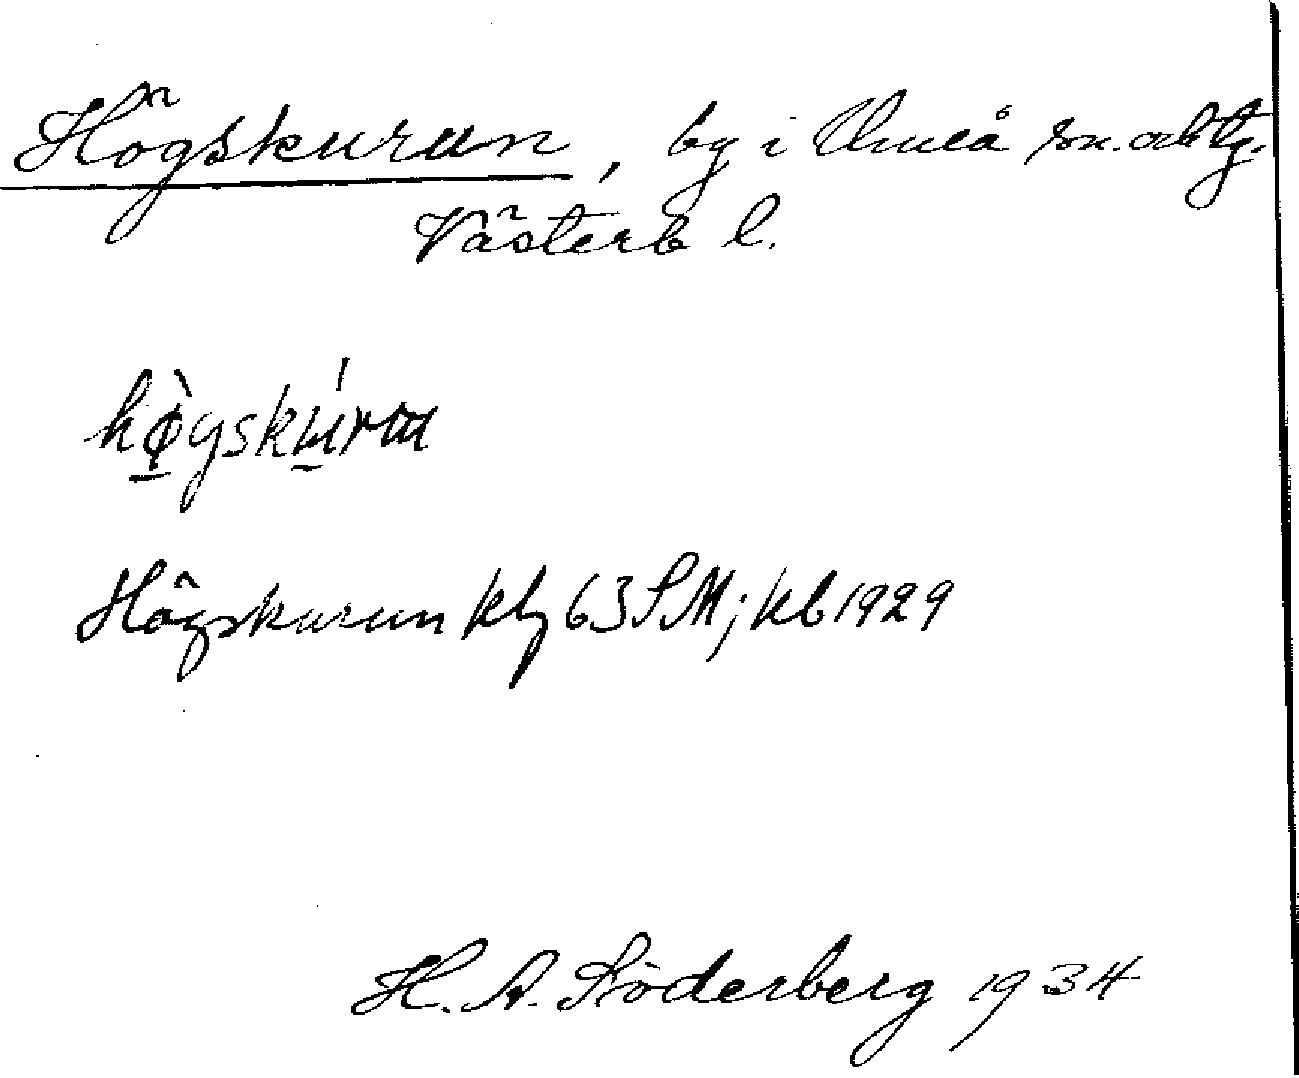 Högskurun, by i Umeå sn. och tg.
Västerb l.
Högskurun 63 SM; kb 1929
H. A. Söderberg 1934